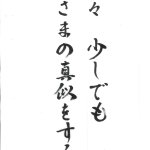 々 少しでも
さまの真似をする